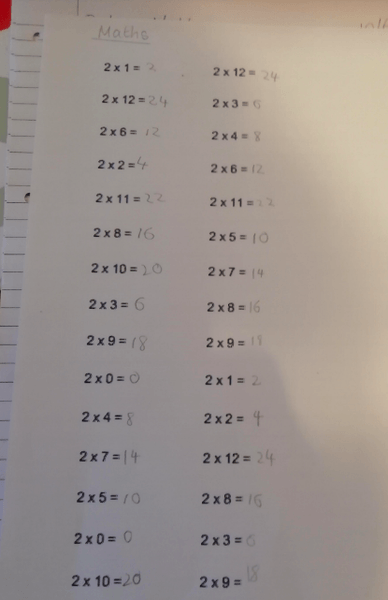 Maths
2 x 1 = 2
2 x 12 = 24
2 x 6 = 12
2 x 2 = 4
2 x 11 = 22
2 x 8 = 16
2 x 10 = 20
2 x 3 = 6
2 x 9 = 18
2 x 0 = 0
2 x 4 = 8
2 x 7 = 14
2 x 5 = 10
2 x 0 = 0
2 x 10 = 20
2 x 12 = 24
2 x 3 = 6
2 x 4 = 8
2 x 6 = 12
2 x 11 = 22
2 x 5 = 10
2 x 7 = 14
2 x 8 = 16
2 x 9 = 18
2 x 1 = 2
2 x 2 = 4
2 x 12 = 24
2 x 8 = 16
2 x 3 = 6
2 x 9 = 18